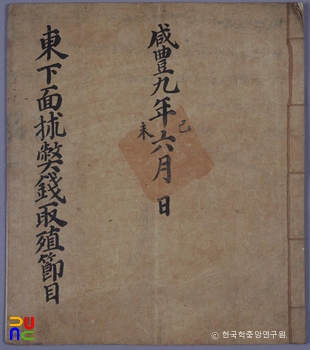 咸豊九年己未六月 日
東下面捄弊錢取殖節目
ⓒ 한국학중앙연구원